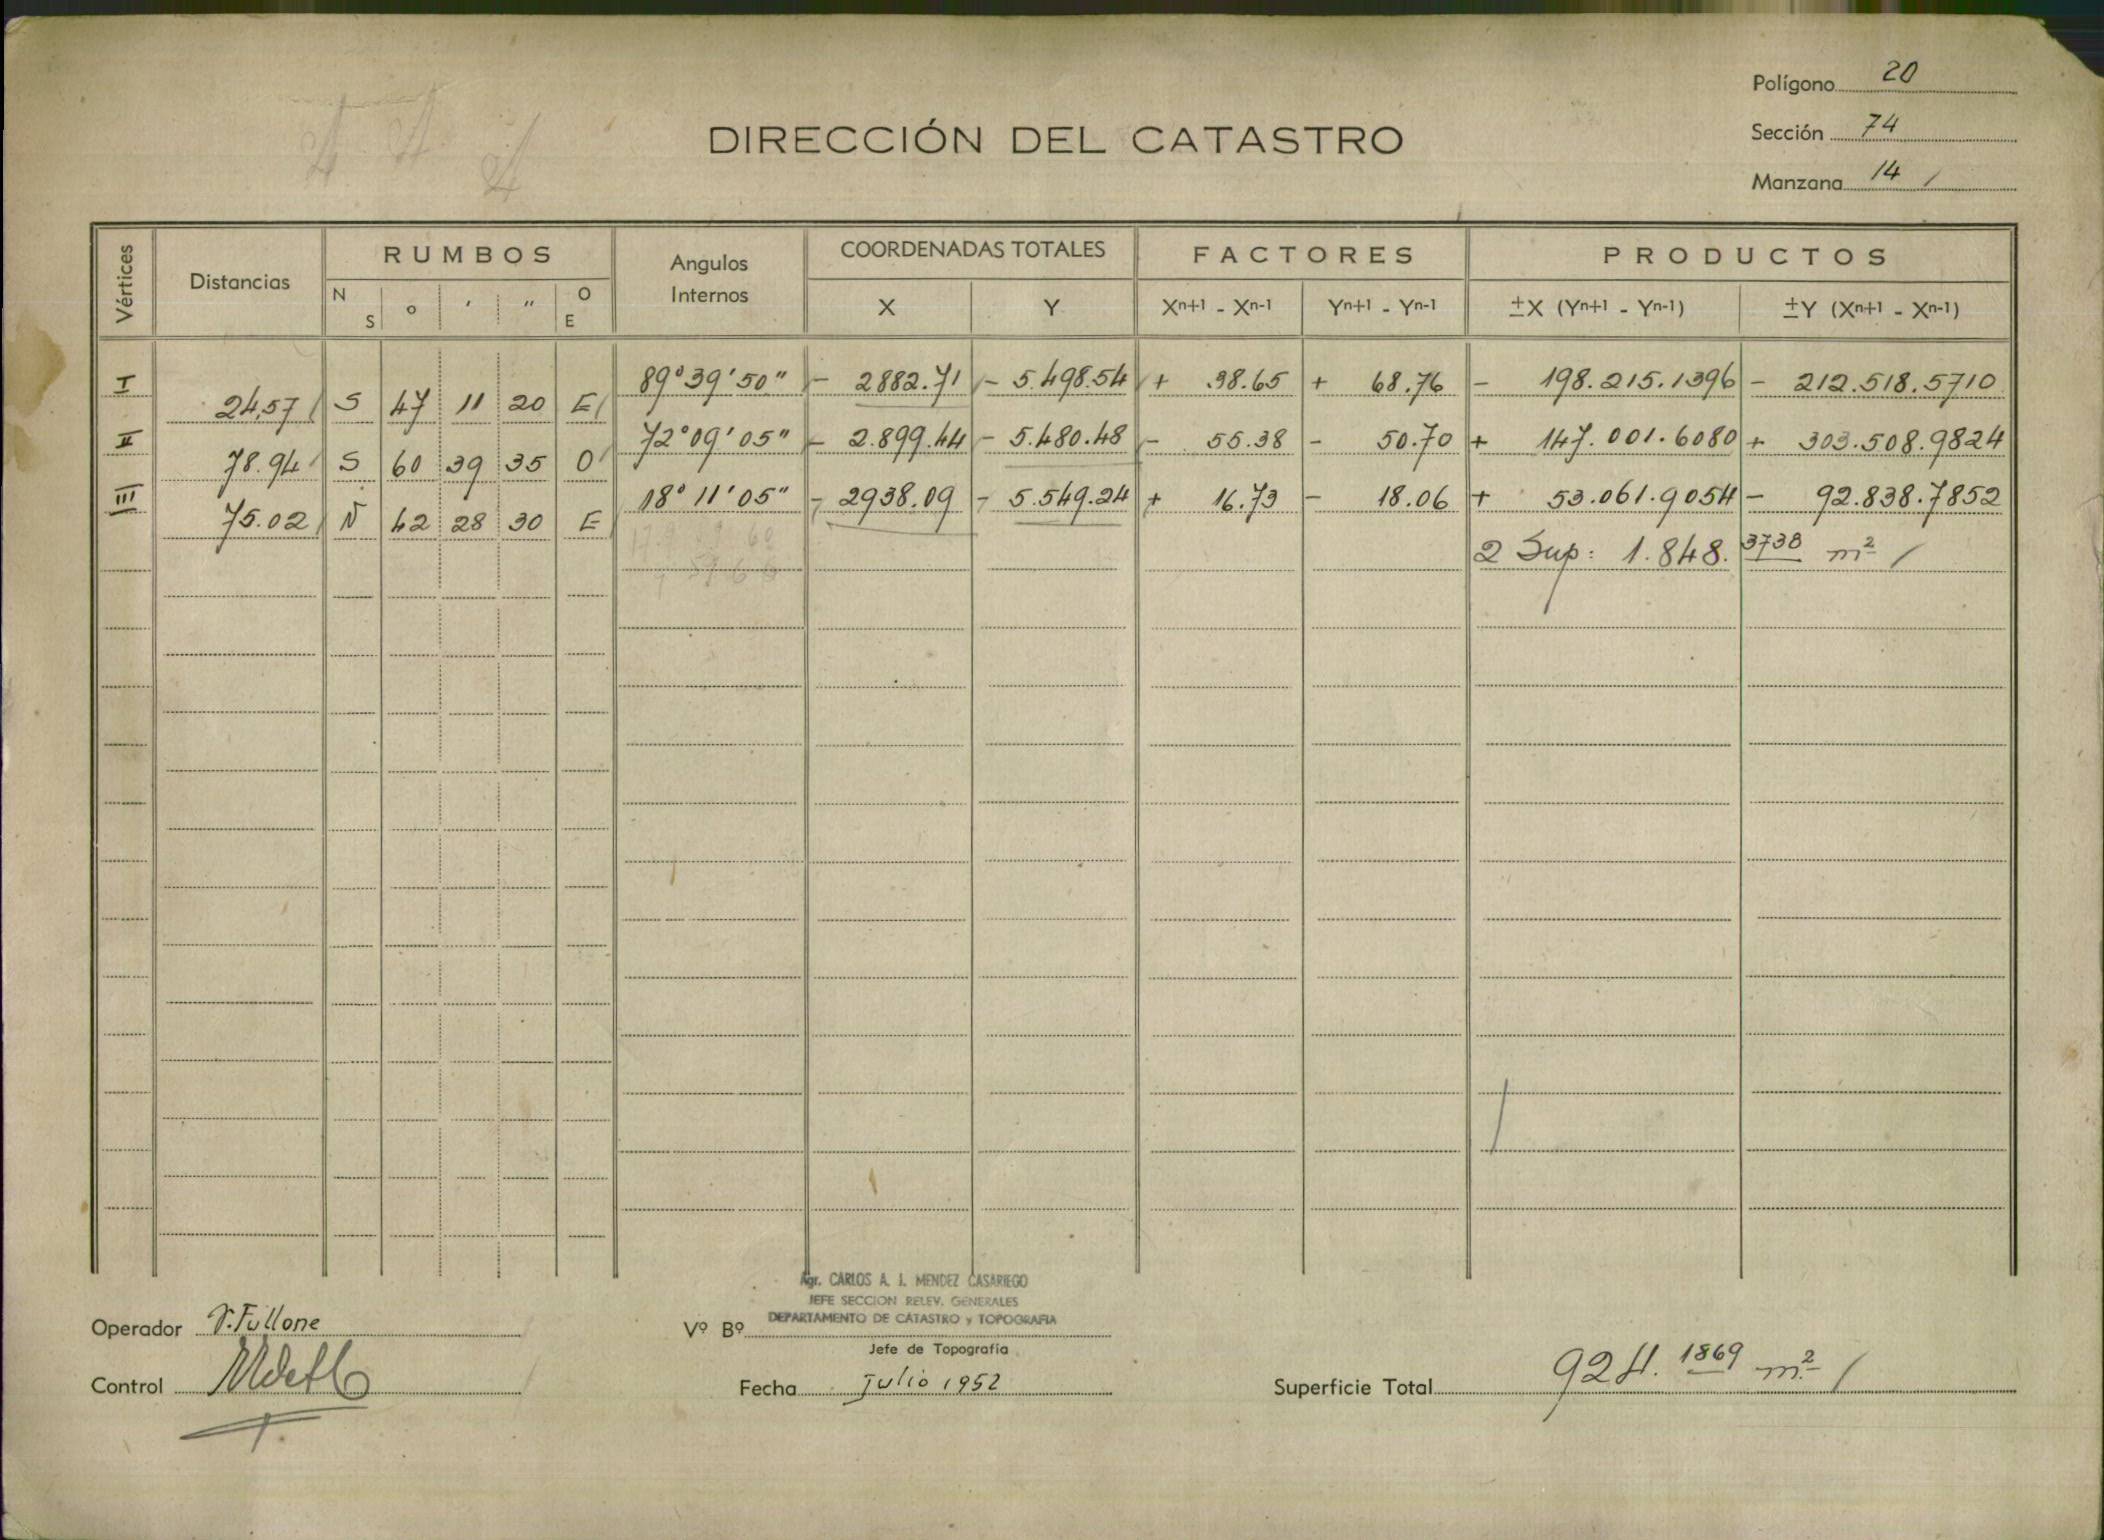 Polígono 20
Sección 74
Manzana 14 /
DIRECCIÓN DEL CATASTRO
Vértices Distancias RUMBOS Angulos Internos COORDENADAS TOTALES FACTORES PRODUCTOS
N S o ' " O E X Y Xn+1 - Xn-1 Yn+1 - Yn-1 ±X (Yn+1 - Yn-1) ±Y (Xn+1 - Xn-1)
I 89°39'50" - 2882.71 - 5.498.54 + 38.65 + 68.76 - 198.215.1396 - 212.518.5710
24,57 S 47 11 20 E
II 72°09'05" - 2.899.44 - 5.480.48 - 55.38 - 50.70 + 147.001.6080 + 303.508.9824
78.94 S 60 39 35 O
III 18°11'05" - 2938.09 - 5.549.24 + 16.73 - 18.06 + 53.061.9054 - 92.838.7852
75.02 N 42 28 30 E
2 Sup: 1.848.3738 m² /
Agr. CARLOS A. J. MENDEZ CASARIEGO
JEFE SECCION RELEV. GENERALES
DEPARTAMENTO DE CATASTRO y TOPOGRAFIA
Operador Fullone
Vº Bº
Jefe de Topografía
Control
Fecha Julio 1952
Superficie Total 924.1869 m² /